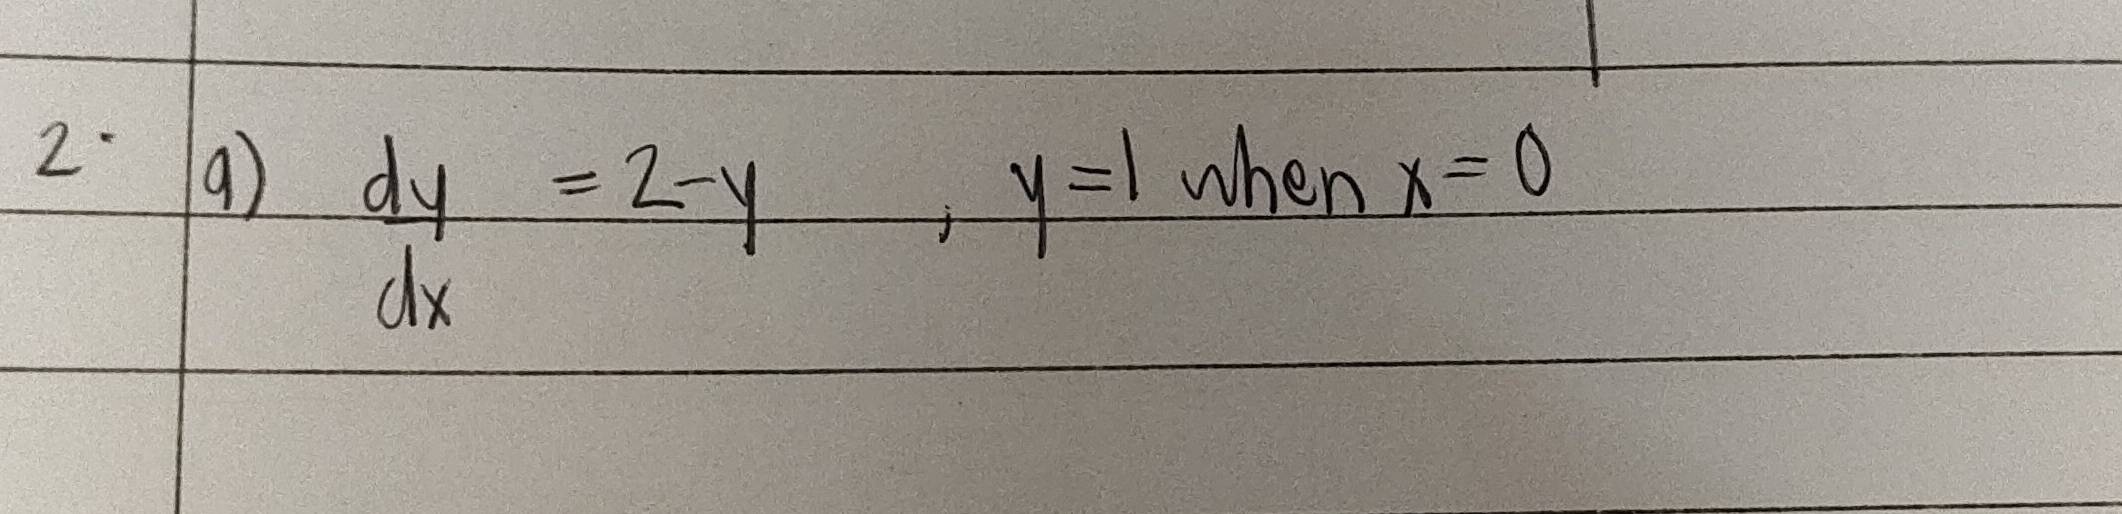 2. a) dy/dx = 2-y , y=1 when x=0